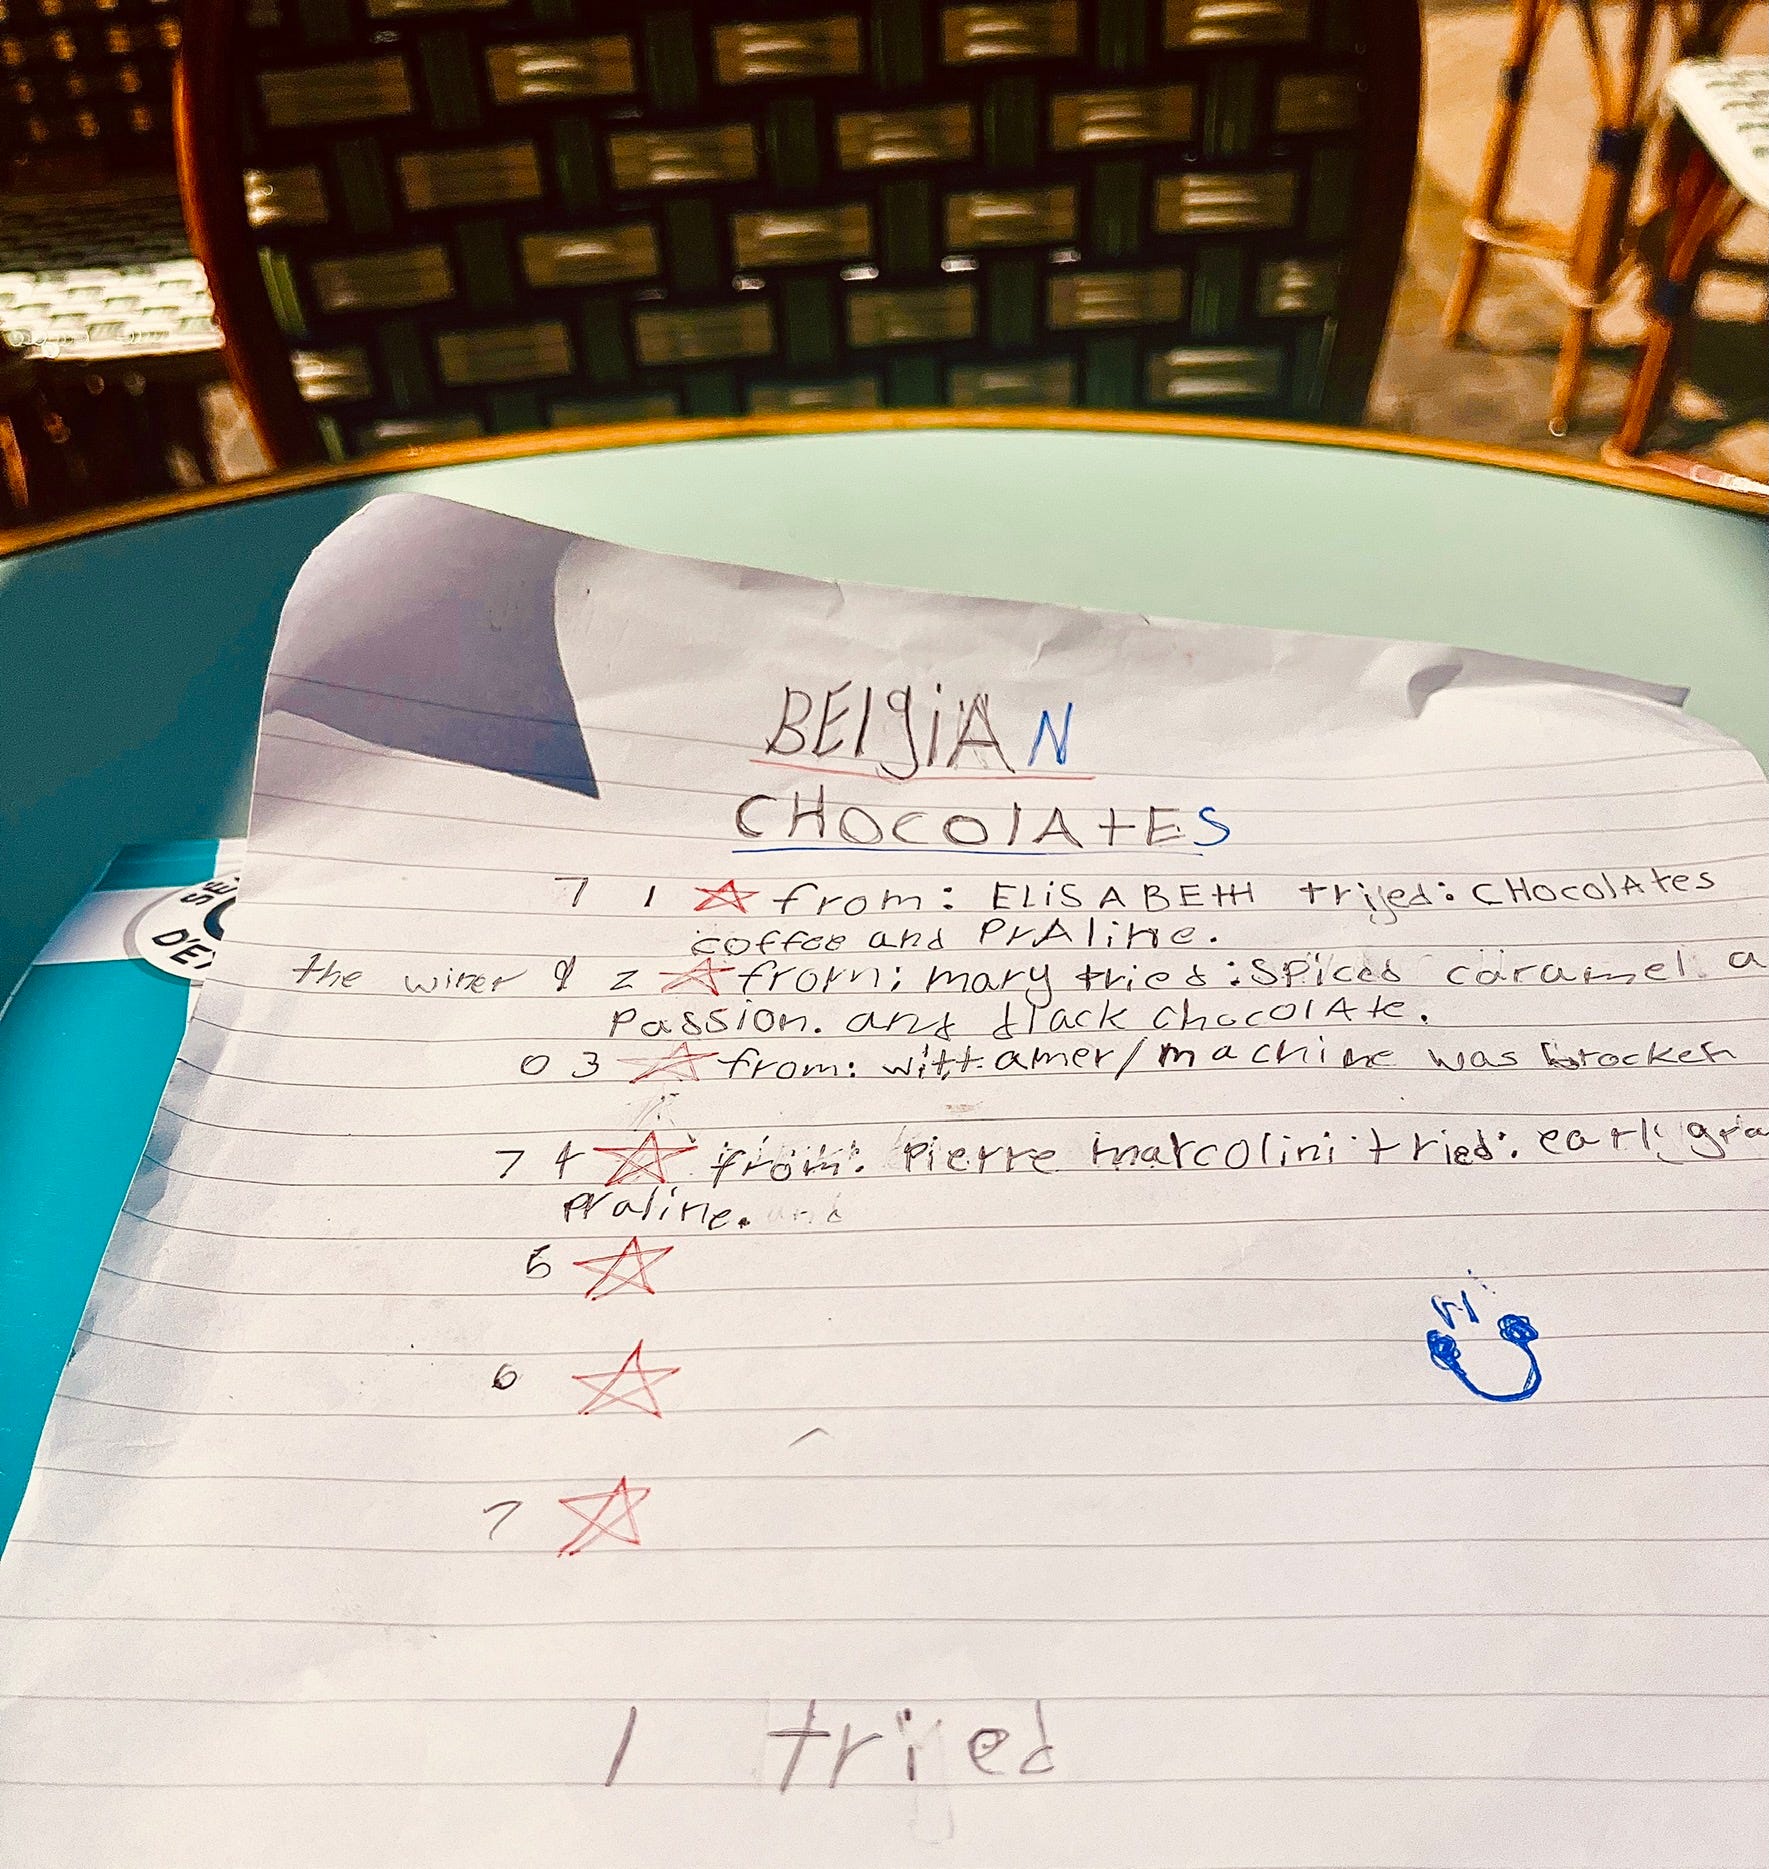 BElgiAN
CHOCOlAtES
7 1 from: ELiSABEtH trijed: CHocolAtes
coffee and PrAline.
the winer 9 2 from: mary tried: spiced caramel a
Passion. and dlack chocolAte.
0 3 from: wittamer/machine was brocken
7 4 from: Pierre marcolini tried: earl gra
Praline. and
5
Hi
6
7
1 tried
D'E